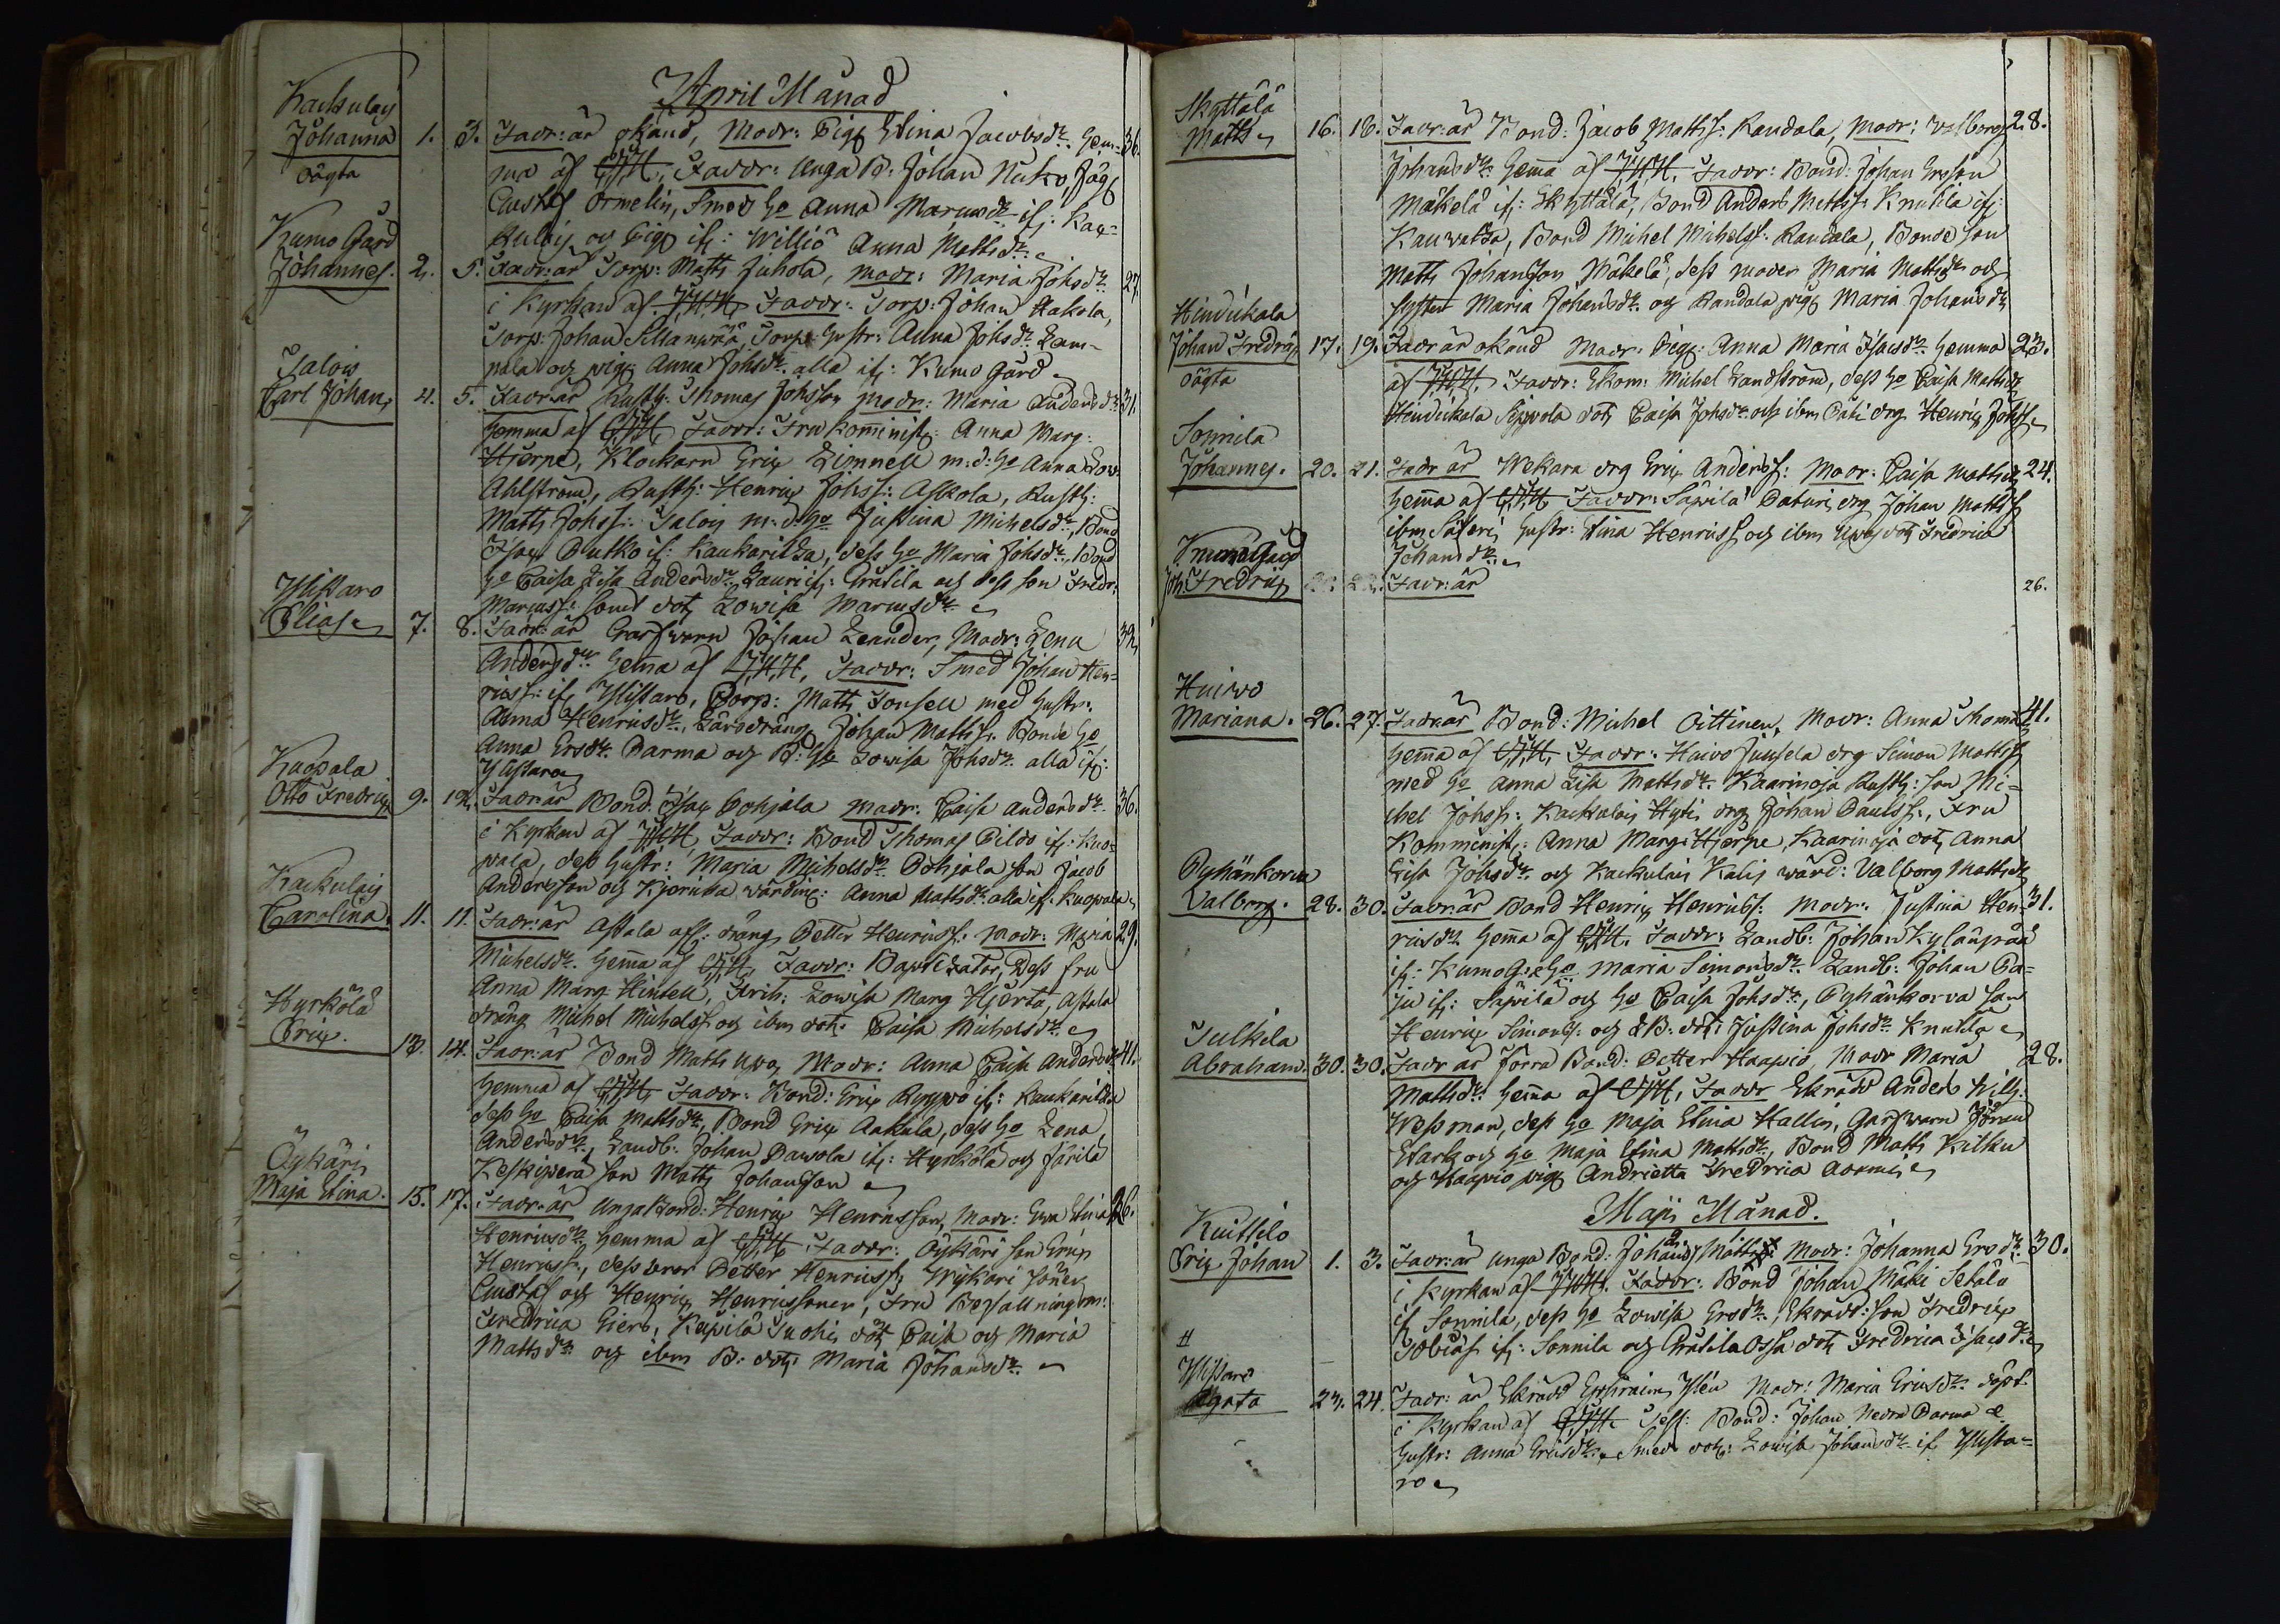 April Månad
Kackulais
Johanna 1. 3. Fadr: är okänd, Modr: Pig: Stina Jacobsdr. Hem- 36.
oägta
ma af Favdr: Unga B: Johan Nuko Jäg
Gustaf Ormelin, Smed Ho Anna Marcusdr if: Kac-
kulais og Pig if: Williö Anna Mattsdr.
Kumo Gård
Johannes. 2. 5. Fadr: är Torp: Matts Juhola, Modr: Maria Johsdr 27.
i Kyrkan af Favdr: Torp: Johan Hakola,
Torp: Johan Sillanpää, Torp: Hustr: Anna Johsdr. Lam-
pala og pig: Anna Johsdr. alla if: Kumo Gård
Talois
Carl Johan 4. 5. Fadr: är Rusth: Thomas Johsson Modr: Maria Andersdr. 31.
Hemma af Favdr: Fru Komminist: Anna Marg:
Hjerpe, Klockarn Eric Limnell m: d: Ho Anna Lov:
Ahlström, Rusth: Henric Johss: Askola, Rusth:
Matts Johss: Talois m: d: Ho Justina Michelsdr, Bond
Isac Butko if: Kaukaritza, dess Ho Maria Johsdr, Bond
Ho Caisa Lisa Andersdr. Lauri if: Gräsila og dess son Fredr:
Marcuss: samt dot Lowisa Marcusdr
Ylistaro
Elias 7. 8. Fadr: är Garfwarn Johan Leander, Modr: Lena 32.
Andersdr. Hemma af Favdr: Smed Johan Hen-
ricss: if Ylistaro, Torp: Matts Tonsell med Hustr:
Anna Henricsdr, Lärodräng Johan Mattss. Bonde Ho
Anna Ersdr. Parma og B: Ho Lowisa Johsdr. alla if:
Ylistaro
Kuopala
Otto Fredric 9. 12. Fadr: är Bond. Isac Pohjala Modr: Caisa Andersdr. 36.
i Kyrkan af Favdr: Bond Thomas Pildo if: Kuo-
pala, dess Hustr: Maria Michelsdr. Pohjala son Jacob
Andersson og wärdinn: Anna Mattsdr. alla if: Kuopala
Kackulais
Carolina. 11. 11. Fadr: är Astala dräng Petter Henricss: Modr: Maria 29.
Michelsdr. Hemma af Favdr: Dess fru
Anna Marg Hintell, Lowisa Marg Hjerta, Astala
dräng Michel Michelss og ibm dot: Caisa Michelsdr
Hyrkölä
Eric. 13. 14. Fadr: är Bond Matts Uga Modr: Anna Caisa Andersdr 41.
Hemma af Favdr: Bond: Eric Ryppö if: Kaukaritza
dess Ho Caisa Mattsdr, Bond Eric Aakula, dess Ho Lena
Andersdr, Landb: Johan Pawola if: Hyrkölä og Järilä
Keskiperä son Matts Johansson
Öykäri
Maja Stina. 15. 17. Fadr: är Unga Bond: Henric Henricsson, Modr: Eva Stina 26.
Henricsdr. Hemma af Favdr: Öykäri son Eric
Henricss, dess bror Petter Henricss, Wykäri söner
Gustaf og Henric Henricssoner, Fru Befallningsm:
Fredrica Kepilä Suohi, dot Caisa og Maria
Mattsdr og ibm B: dot: Maria Johansdr.
Skyttälä
Matts 16. 18. Fadr: är Bond: Jacob Mattss: Randala, Modr: Valborg 28.
Johansdr Hemma af Favdr: Bond: Johan Ersson
Mäkelä if: Skyttälä, Bond Anders Mattss: Knutila if:
Kauwatza, Bond Michel Michelss: Randala, Bonde son
Matts Johansson Mäkelä, dess moder Maria Mattsdr og
syster Maria Johansdr. og Randala pig: Maria Johansdr
Hindickala
Johan Fredric 17. 19. Fadr är okänd Modr: Pig: Anna Maria Isacsdr. Hemma 23.
oägta
af Favdr: Ekom: Michel Landström, dess Ho Caisa Mattsdr
Hindickala Seppola dot Caisa Johsdr. og ibm drg Henric Johss
Sonnila
Johannes. 20. 21. Fadr är Wekara drg Eric Anderss: Modr: Caisa Mattsdr 24.
Hemma af Favdr: Säpilä drg Johan Mattss
ibm Säteri Hustr: Stina Henricss og ibm dot Fredrica
Johansdr.
Kumo Gård
Joh: Fredric 22. 22. Fadr: är 26.
Huivo
Mariana. 26. 27. Fadr: är Bond: Michel Oittinen, Modr: Anna Thomasdr 41.
Hemma af Favdr: Huivo Junsela drg Simon Mattss
med Ho Anna Lisa Mattsdr. Kaarinoja Rusth: son Mi-
chel Johss: Kackulais Hyti drg Johan Paulss:, Fru
Komminist: Anna Marg: Hjerpe, Kaarinoja dot, Anna
Lisa Johsdr og Kackulais Kalis wärd: Valborg Mattsdr
Pyhänkorva
Valborg. 28. 30. Fadr: är Bond Henric Henricss: Modr: Justina Hen- 31.
ricsdr Hemma af Favdr: Landb: Johan Kylänpää
if: Kumo G: o Ho Maria Simonsdr. Landb: Johan Pa-
ju if: Säpilä og Ho Caisa Johsdr, Pyhänkorva son
Henric Simonss: og B: dot: Justina Johsdr Knutila
Tulkila
Abraham. 30. 30. Fadr är förra Bond: Petter Haapio, Modr Maria 28.
Mattsdr: Hemma af Favdr Skrädd Anders Wilh:
Wessman, dess Ho Maja Stina Hallin, Garfwarn Johan
Stark og Ho Maja Stina Mattsdr, Bond Matts Kilkku
og Haapio pig Andrietta Fredrica
Maji Månad.
Kuittilo
Eric Johan 1. 3. Fadr: är unga Bond: Johan Mattss: Modr: Johanna Ersdr. 30.
i Kyrkan af Favdr: Bond Johan Mäki Setälä
if Sonnila, dess Ho Lowisa Ersdr, Skrädd: son Fredric
Tobias if: Sonnila og Gräsila Ossa dot Fredrica Isacsdr
Ylistaro
Agata 23. 24. Fadr: är Skrädd Ephraim Ylén Modr: Maria Ericsdr. döpt
i Kyrkan af Test: Bond: Johan Nedre Parma &
Hustr: Anna Ericsdr. Smed dot: Lowisa Johansdr if Ylista-
ro